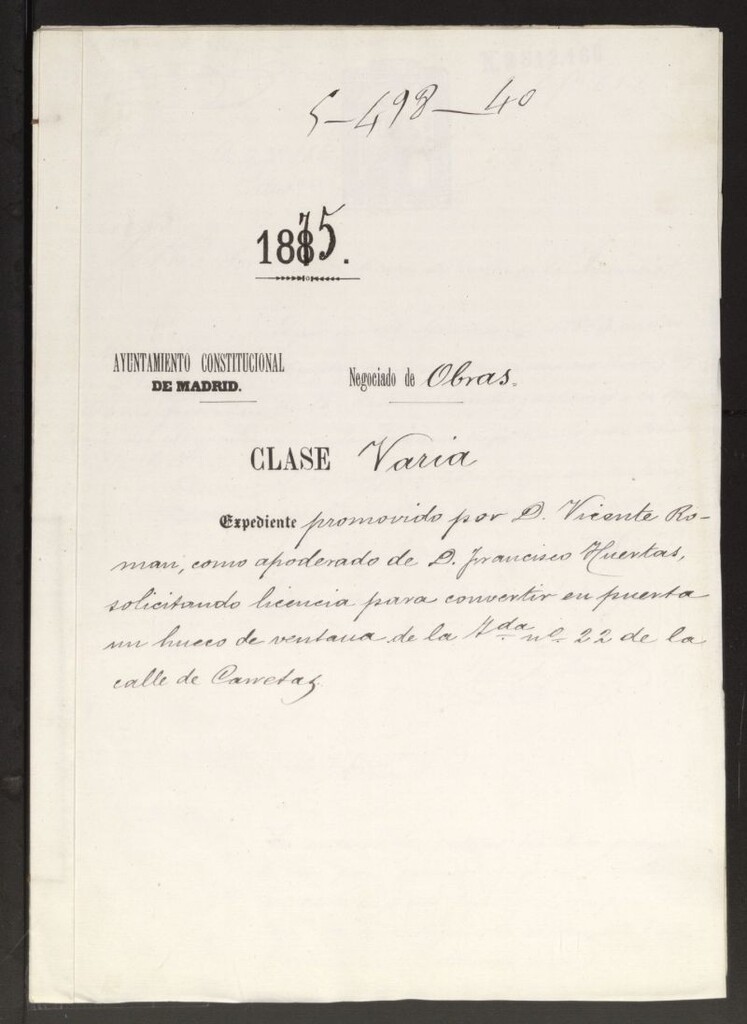 5-498-40
1875.
AYUNTAMIENTO CONSTITUCIONAL
DE MADRID.
Negociado de Obras.
CLASE Varia
Expediente promovido por D. Vicente Ro-
man, como apoderado de D. Francisco Huertas,
solicitando licencia para convertir en puerta
un hueco de ventana de la nº 22 de la
calle de Carretas